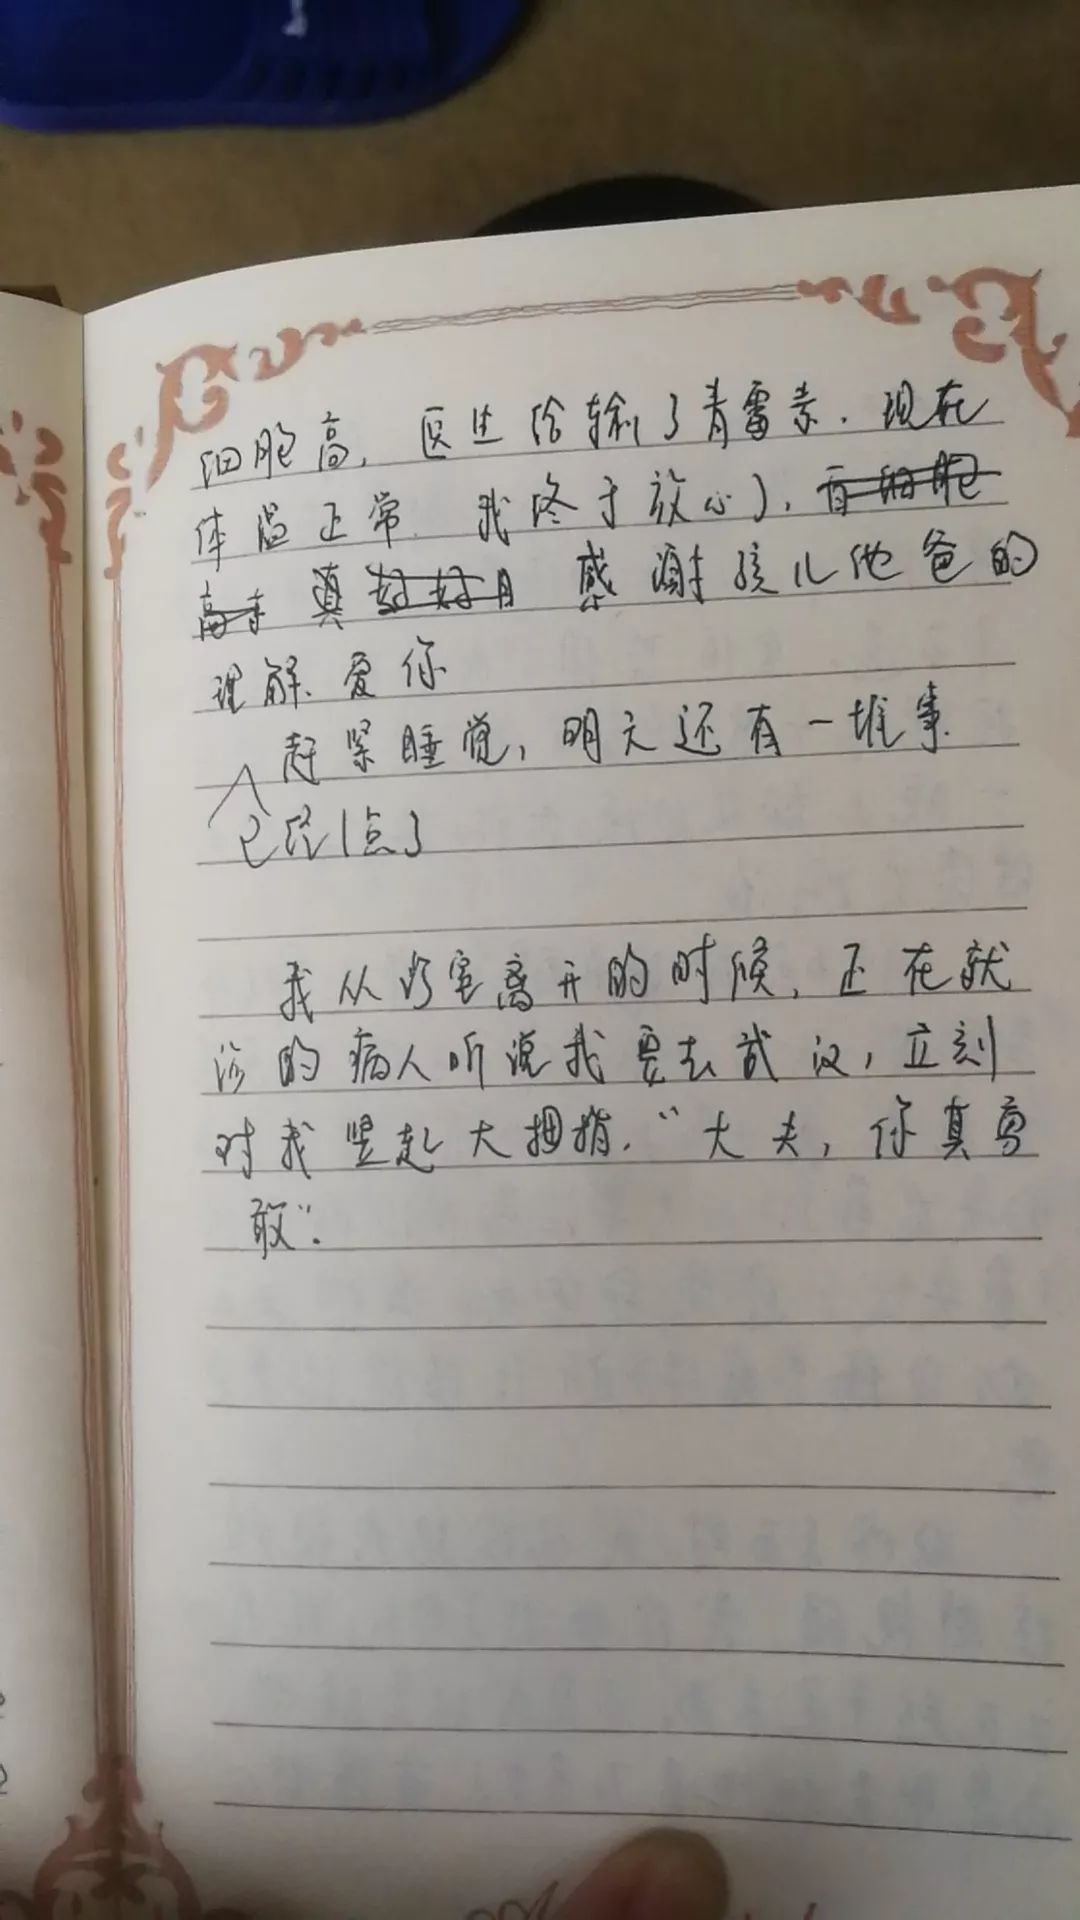 细胞高，医生给输了青霉素．现在
体温正常．我终于放心了．白细胞
高 真 感谢孩儿他爸的
理解、爱你
赶紧睡觉，明天还有一堆事
已经1点了
我从诊室离开的时候，还在就
诊的病人听说我要去武汉，立刻
对我竖起大拇指．“大夫，你真勇
敢”．